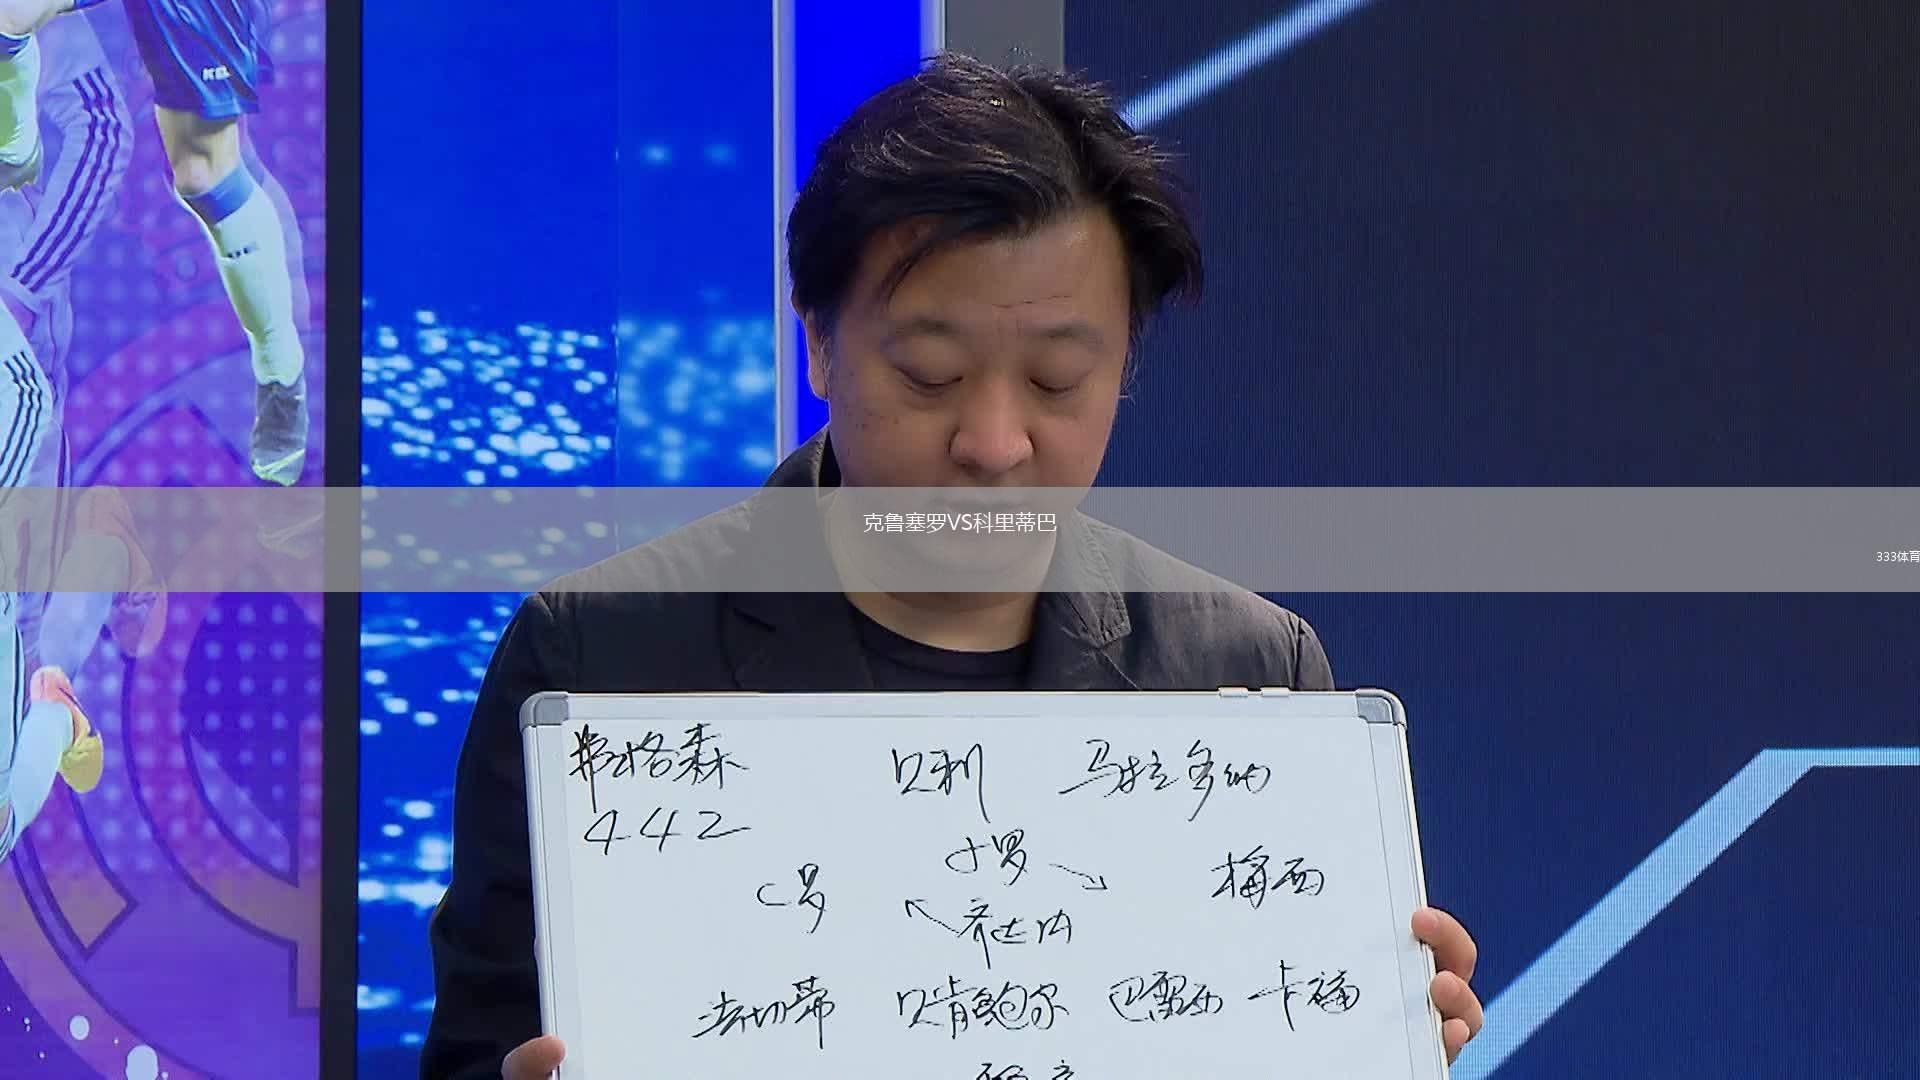 克鲁塞罗VS科里蒂巴
333体育
弗格森 贝利 马拉多纳
442
小罗
C罗 梅西
齐达内
法切蒂 贝肯鲍尔 巴雷西 卡福